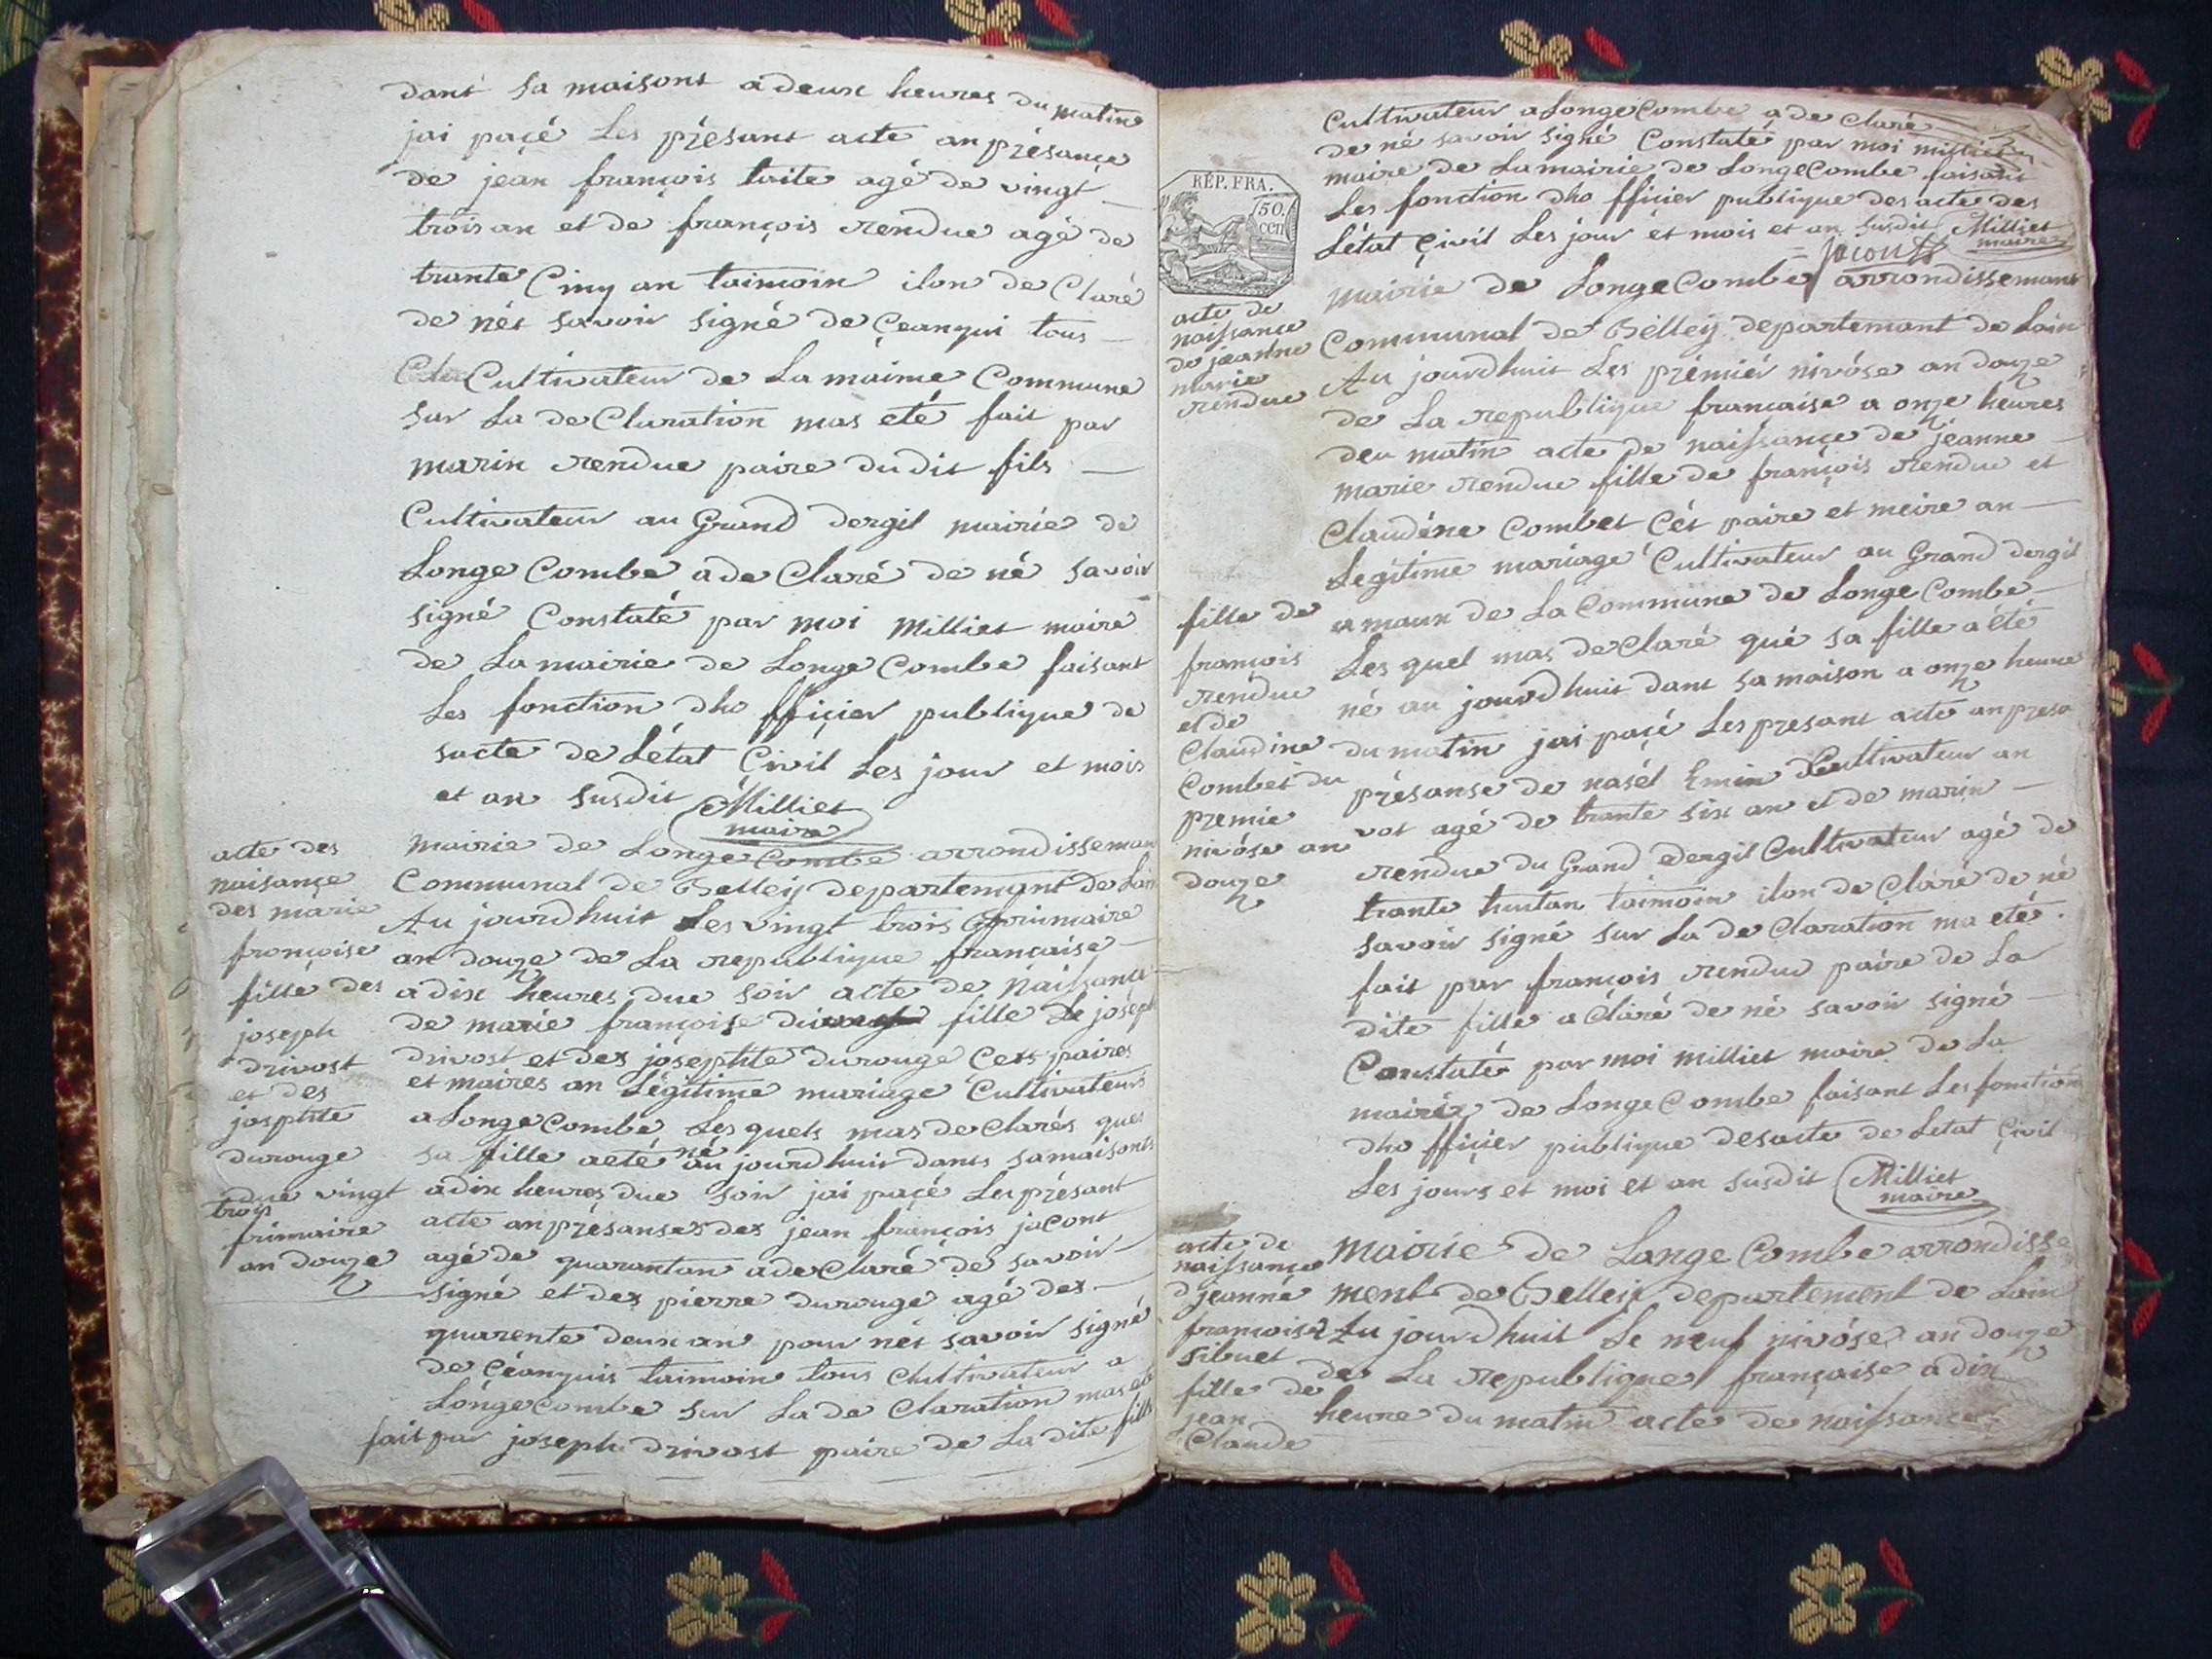 dant sa maisont a deux heures du matin
jai paçé Les présant acte an présançe
de jean françois taite agé de vingt
trois an et de françois rendue agé de
trante Cinq an taimoin ilon de Claré
de nés savoir signé de Çeanqui tous
Cultivateur de La maime Commune
sur La de Claration mas eté fait par
marin rendue paire dudit fils
Cultivateur au Grand dergil mairie de
Longe Combe a de Claré de né savoir
signé Constaté par moi Milliet maire
de La mairie de Longe Combe faisant
Les fonction dho ffiçier publique de
sacte de Létat Çivil Les jour et mois
et an susdit Milliet
maire
acte des
naisançe
des marie
françoise
fille des
joseph
drivost
et des
josphte
durouge
due vingt
trois
frimaire
an douze
mairie de Longe Combe arrondisseman
Communal de Belley departemant de Lain
Au jourdhuit Les vingt trois frimaire
an douze de La republique française
a dix heures due soir acte de naissance
de marie françoise fille de joséph
drivost et des josephte durouge Cets paires
et maires an Légitime mariage Cultivateurs
a Longe Combe Les quels mas de Clarés ques
sa fille aeté né au jourdhuir dants sa maisonts
a dix heures due soir jai paçé Les présant
acte an présanses des jean françois jacont
agé de quarantan a de Claré de savoir
signé et des pierre durouge agé des
quarente deux an pour nés savoir signé
de Çéanquis taimoin tous Cultivateur a
Longe Combe sur La de Claration mas eté
fait par joseph drivost paire de La dite fille
Cultivateur a Longe Combe a de Claré
de né savoir signé Constaté par moi milliet
maire de La mairie de Longe Combe faisant
Les fonction dho fficier publique des acte des
Létat Çivil Les jour et mois et an susdit Milliet
maire
jacont
RÉP. FRA.
50.
cen
acte de
naissance
de jeanne
marie
rendue
fille de
françois
rendue
et de
Claudine
Combet du
premie
nivôse an
douze
mairie de Longe Combe arrondissemant
Communal de Belley departemant de Lain
Au jourdhuit Les prémiér nivôse an douze
de La republique française a onze heures
deu matin acte de naissançe de jeanne
marie rendue fille de françois rendue et
Claudéne Combet Cét paire et meire an
Legitime mariage Cultivateur au Grand dergil
amaux de La Commune de Longe Combe
Les quel mas de Claré qué sa fille a été
né au jourdhuit dant sa maison a onze heure
du matin jai paçé Les presant acte an presa
présanse de nasél Cultivateur an
vot agé de trante six an et de marin
rendue du Grand dergil Cultivateur agé de
trante huitan taimoin ilon de Claré de né
savoir signé sur La de Claration ma eté.
fait par françois rendue paire de La
dite fille a Claré de né savoir signé
Constaté par moi milliet maire de La
mairie de Longe Combe faisant Les fonction
dho ffiçier publique desacte de Letat Çivil
Les jours et moi et an susdit Milliet
maire
acte de
naissance
d jeanné
francoise
sibuet
fille de
jean
Claude
mairie de Lange Combe arrondisse
ment de Belley departement de Lain
Au jourdhuit Le neuf nivôse an douze
de La republique française a dix
heure du matin acte de naissance